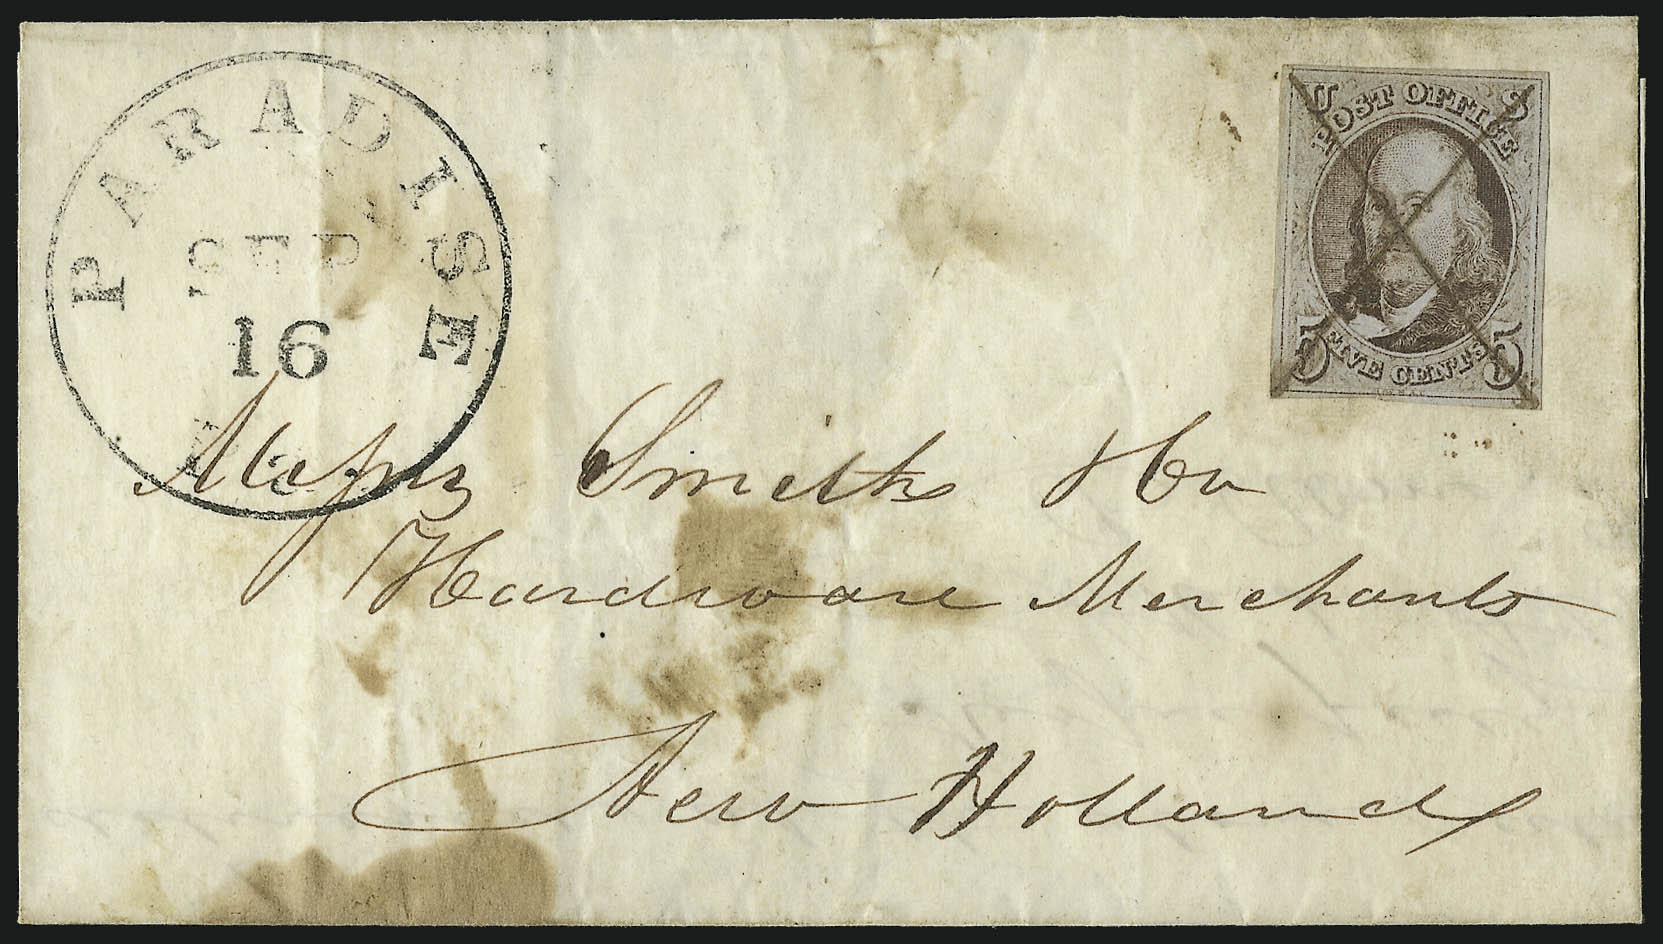 PARADISE
SEP
16
POST OFFICE
FIVE CENTS
5 5
Messrs Smith &
Hardware Merchants
New Holland